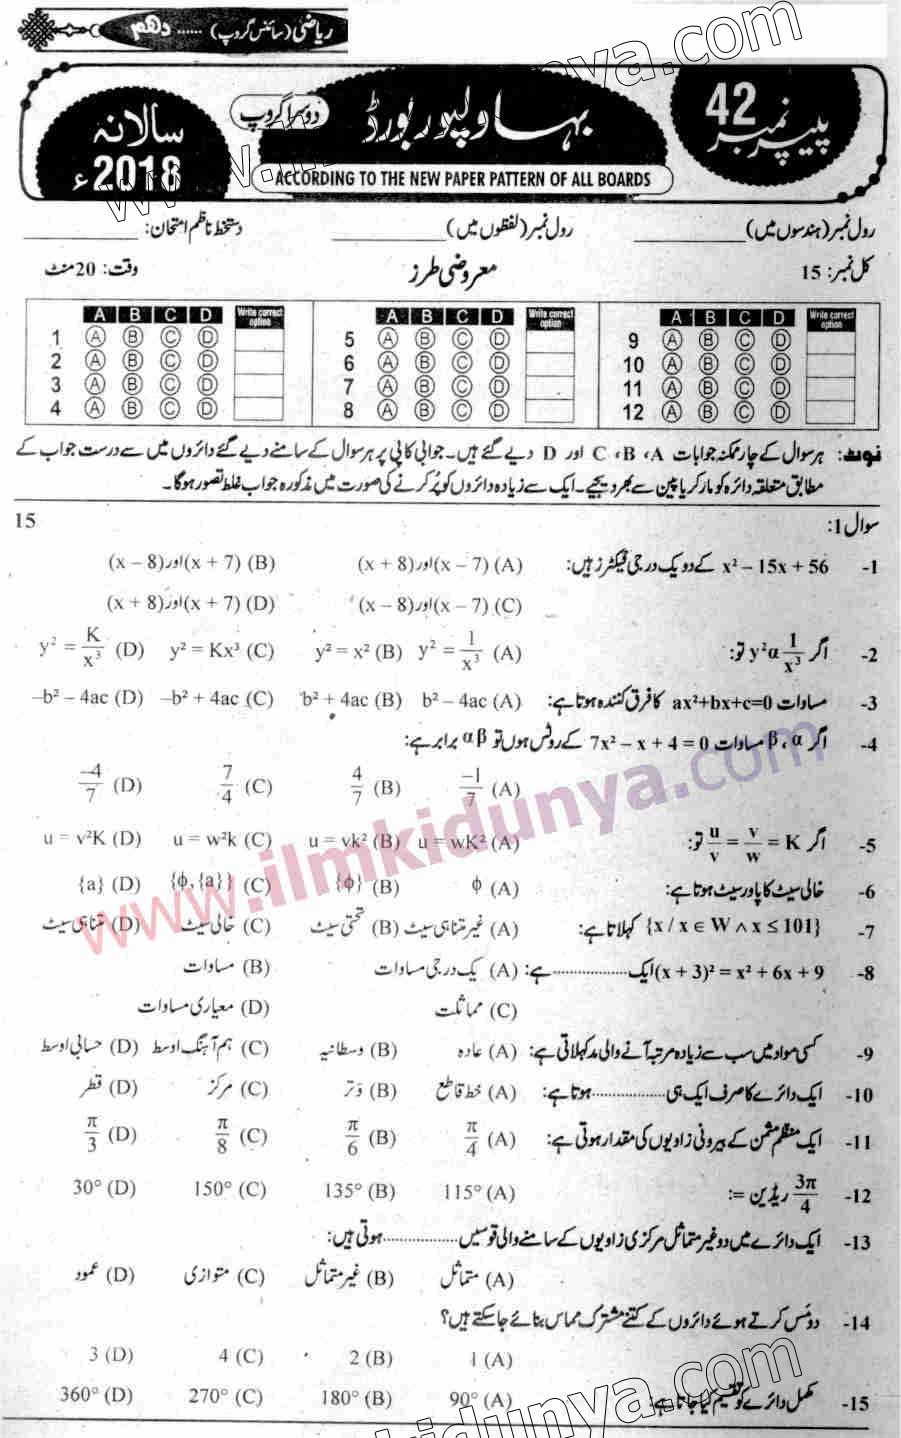 ریاضی (سائنس گروپ) ...... دھم
پیپر نمبر 42
بہاولپور بورڈ
دوسرا گروپ
سالانہ 2018ء
ACCORDING TO THE NEW PAPER PATTERN OF ALL BOARDS
رول نمبر (ہندسوں میں) ____________ رول نمبر (لفظوں میں) ____________ دستخط ناظم امتحان: ____________
کل نمبر: 15 معروضی طرز وقت: 20 منٹ
A B C D Write correct option A B C D Write correct option A B C D Write correct option
1 A B C D 5 A B C D 9 A B C D
2 A B C D 6 A B C D 10 A B C D
3 A B C D 7 A B C D 11 A B C D
4 A B C D 8 A B C D 12 A B C D
نوٹ: ہر سوال کے چار ممکنہ جوابات A، B، C اور D دیے گئے ہیں۔ جوابی کاپی پر ہر سوال کے سامنے دیے گئے دائروں میں سے درست جواب کے
مطابق متعلقہ دائرہ کو مارکر یا پین سے بھر دیجیے۔ ایک سے زیادہ دائروں کو پُر کرنے کی صورت میں مذکورہ جواب غلط تصور ہوگا۔
سوال 1: 15
1- x² – 15x + 56 کے دو یک درجی فیکٹرز ہیں: (A) (x – 7) اور (x + 8) (B) (x + 7) اور (x – 8)
(C) (x – 7) اور (x – 8) (D) (x + 7) اور (x + 8)
2- اگر y²α 1/x³ تو: (A) y² = 1/x³ (B) y² = x² (C) y² = Kx³ (D) y² = K/x³
3- مساوات ax²+bx+c=0 کا فرق کنندہ ہوتا ہے: (A) b² – 4ac (B) b² + 4ac (C) –b² + 4ac (D) –b² – 4ac
4- اگر β، α مساوات 7x² – x + 4 = 0 کے روٹس ہوں تو αβ برابر ہے:
(A) –1/7 (B) 4/7 (C) 7/4 (D) –4/7
5- اگر u/v = v/w = K تو: (A) u = wK² (B) u = vk² (C) u = w²k (D) u = v²K
6- خالی سیٹ کا پاور سیٹ ہوتا ہے: (A) ϕ (B) {ϕ} (C) {ϕ, {a}} (D) {a}
7- {x / x ∈ W ∧ x ≤ 101} کہلاتا ہے: (A) غیر متناہی سیٹ (B) تحتی سیٹ (C) خالی سیٹ (D) متناہی سیٹ
8- (x + 3)² = x² + 6x + 9 ایک .................. ہے: (A) یک درجی مساوات (B) مساوات
(C) مماثلت (D) معیاری مساوات
9- کسی مواد میں سب سے زیادہ مرتبہ آنے والی مد کہلاتی ہے: (A) عادہ (B) وسطانیہ (C) ہم آہنگ اوسط (D) حسابی اوسط
10- ایک دائرے کا صرف ایک ہی .................. ہوتا ہے: (A) خط قاطع (B) وتر (C) مرکز (D) قطر
11- ایک منظم مثمن کے بیرونی زاویوں کی مقدار ہوتی ہے: (A) π/4 (B) π/6 (C) π/8 (D) π/3
12- 3π/4 ریڈین =: (A) 115° (B) 135° (C) 150° (D) 30°
13- ایک دائرے میں دو غیر متماثل مرکزی زاویوں کے سامنے والی قوسیں .................. ہوتی ہیں:
(A) متماثل (B) غیر متماثل (C) متوازی (D) عمود
14- دو مَس کرتے ہوئے دائروں کے کتنے مشترک مماس بنائے جا سکتے ہیں؟
(A) 1 (B) 2 (C) 4 (D) 3
15- مکمل دائرے کو تقسیم کیا جاتا ہے: (A) 90° (B) 180° (C) 270° (D) 360°
www.ilmkidunya.com